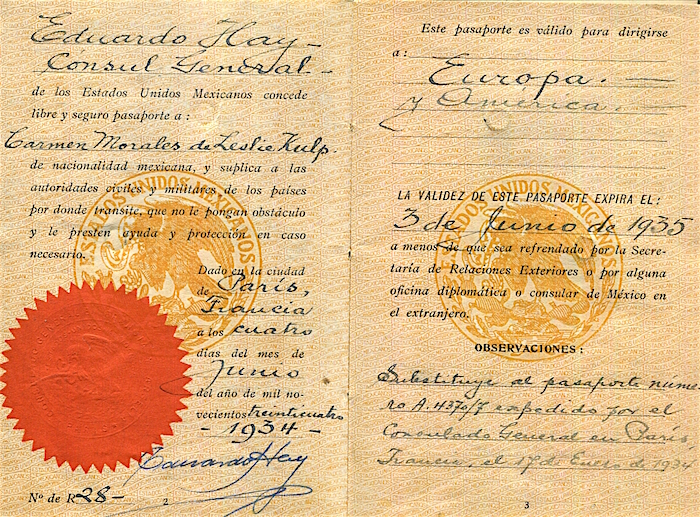 Eduardo Hay –
Consul General –
de los Estados Unidos Mexicanos concede
libre y seguro pasaporte a :
Carmen Morales de Leslie Kulp.
de nacionalidad mexicana, y suplica a las
autoridades civiles y militares de los países
por donde transite, que no le pongan obstáculo
y le presten ayuda y protección en caso
necesario.
Dado en la ciudad
de París,
Francia
a los cuatro
días del mes de
Junio
del año de mil no-
vecientos treinticuatro
- 1934 -
Eduardo Hay
Nº de R 28 -
2
Este pasaporte es válido para dirigirse
a :
Europa. —
y América. —
LA VALIDEZ DE ESTE PASAPORTE EXPIRA EL :
3 de Junio de 1935
a menos de que sea refrendado por la Secre-
taría de Relaciones Exteriores o por alguna
oficina diplomática o consular de México en
el extranjero.
OBSERVACIONES :
Substituye al pasaporte nume-
ro A. 4370/7 expedido por el
Consulado General en París,
Francia, el 17 de Enero de 1934
3
ESTADOS UNIDOS MEXICANOS
ESTADOS UNIDOS MEXICANOS